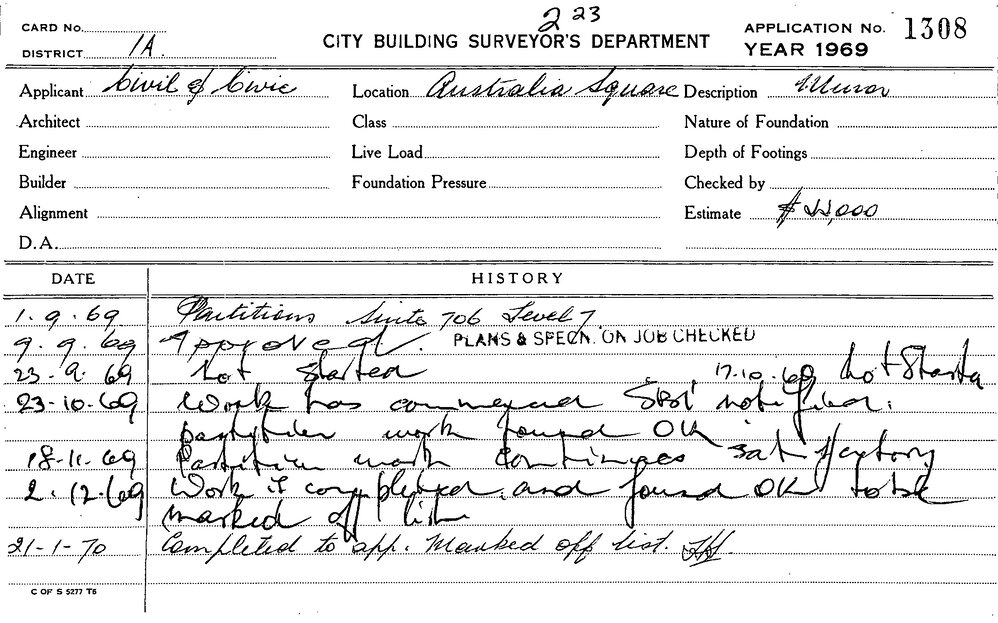 2 23
CARD No.
CITY BUILDING SURVEYOR'S DEPARTMENT
APPLICATION No. 1308
DISTRICT 1A.
YEAR 1969
Applicant Civil & Civic
Location Australia Square
Description Minor
Architect
Class
Nature of Foundation
Engineer
Live Load
Depth of Footings
Builder
Foundation Pressure
Checked by
Alignment
Estimate $22,000
D.A.
DATE HISTORY
1.9.69 Partitions Suite 706 Level 7
9.9.69 Approved. PLANS & SPECN. ON JOB CHECKED
23.9.69 Not Started 17.10.69 Not Starte
23-10-69 Work has commenced notified.
work found OK
18-11-69 Partition work continues satisfactory
2.12.69 Work is completed and found OK to be
marked off list
21-1-70 Completed to app. Marked off list.
C OF S 5277 T6